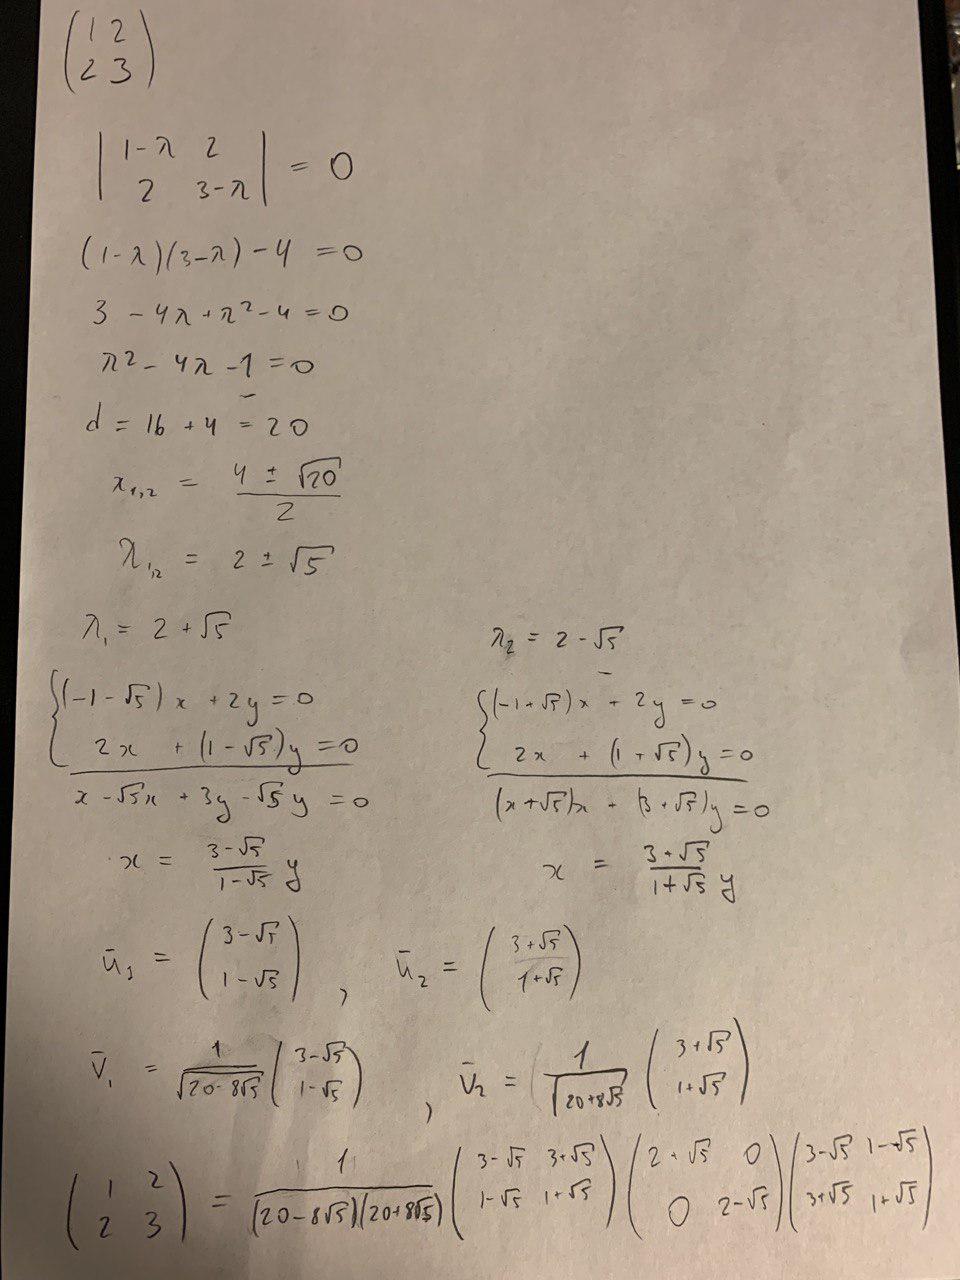 (1 2
2 3)
|1-λ 2
2 3-λ| = 0
(1-λ)(3-λ) - 4 = 0
3 - 4λ + λ² - 4 = 0
λ² - 4λ - 1 = 0
d = 16 + 4 = 20
x₁,₂ = (4 ± √20)/2
λ₁,₂ = 2 ± √5
λ₁ = 2 + √5
{(-1-√5)x + 2y = 0
2x + (1-√5)y = 0
x - √5x + 3y - √5y = 0
x = (3-√5)/(1-√5) y
λ₂ = 2 - √5
{(-1+√5)x + 2y = 0
2x + (1+√5)y = 0
(x+√5)x + (3+√5)y = 0
x = (3+√5)/(1+√5) y
ū₁ = (3-√5
1-√5), ū₂ = (3+√5
1+√5)
v̄₁ = 1/√(20-8√5) (3-√5
1-√5), v̄₂ = 1/√(20+8√5) (3+√5
1+√5)
(1 2
2 3) = 1/((20-8√5)(20+8√5)) (3-√5 3+√5
1-√5 1+√5) (2+√5 0
0 2-√5) (3-√5 1-√5
3+√5 1+√5)